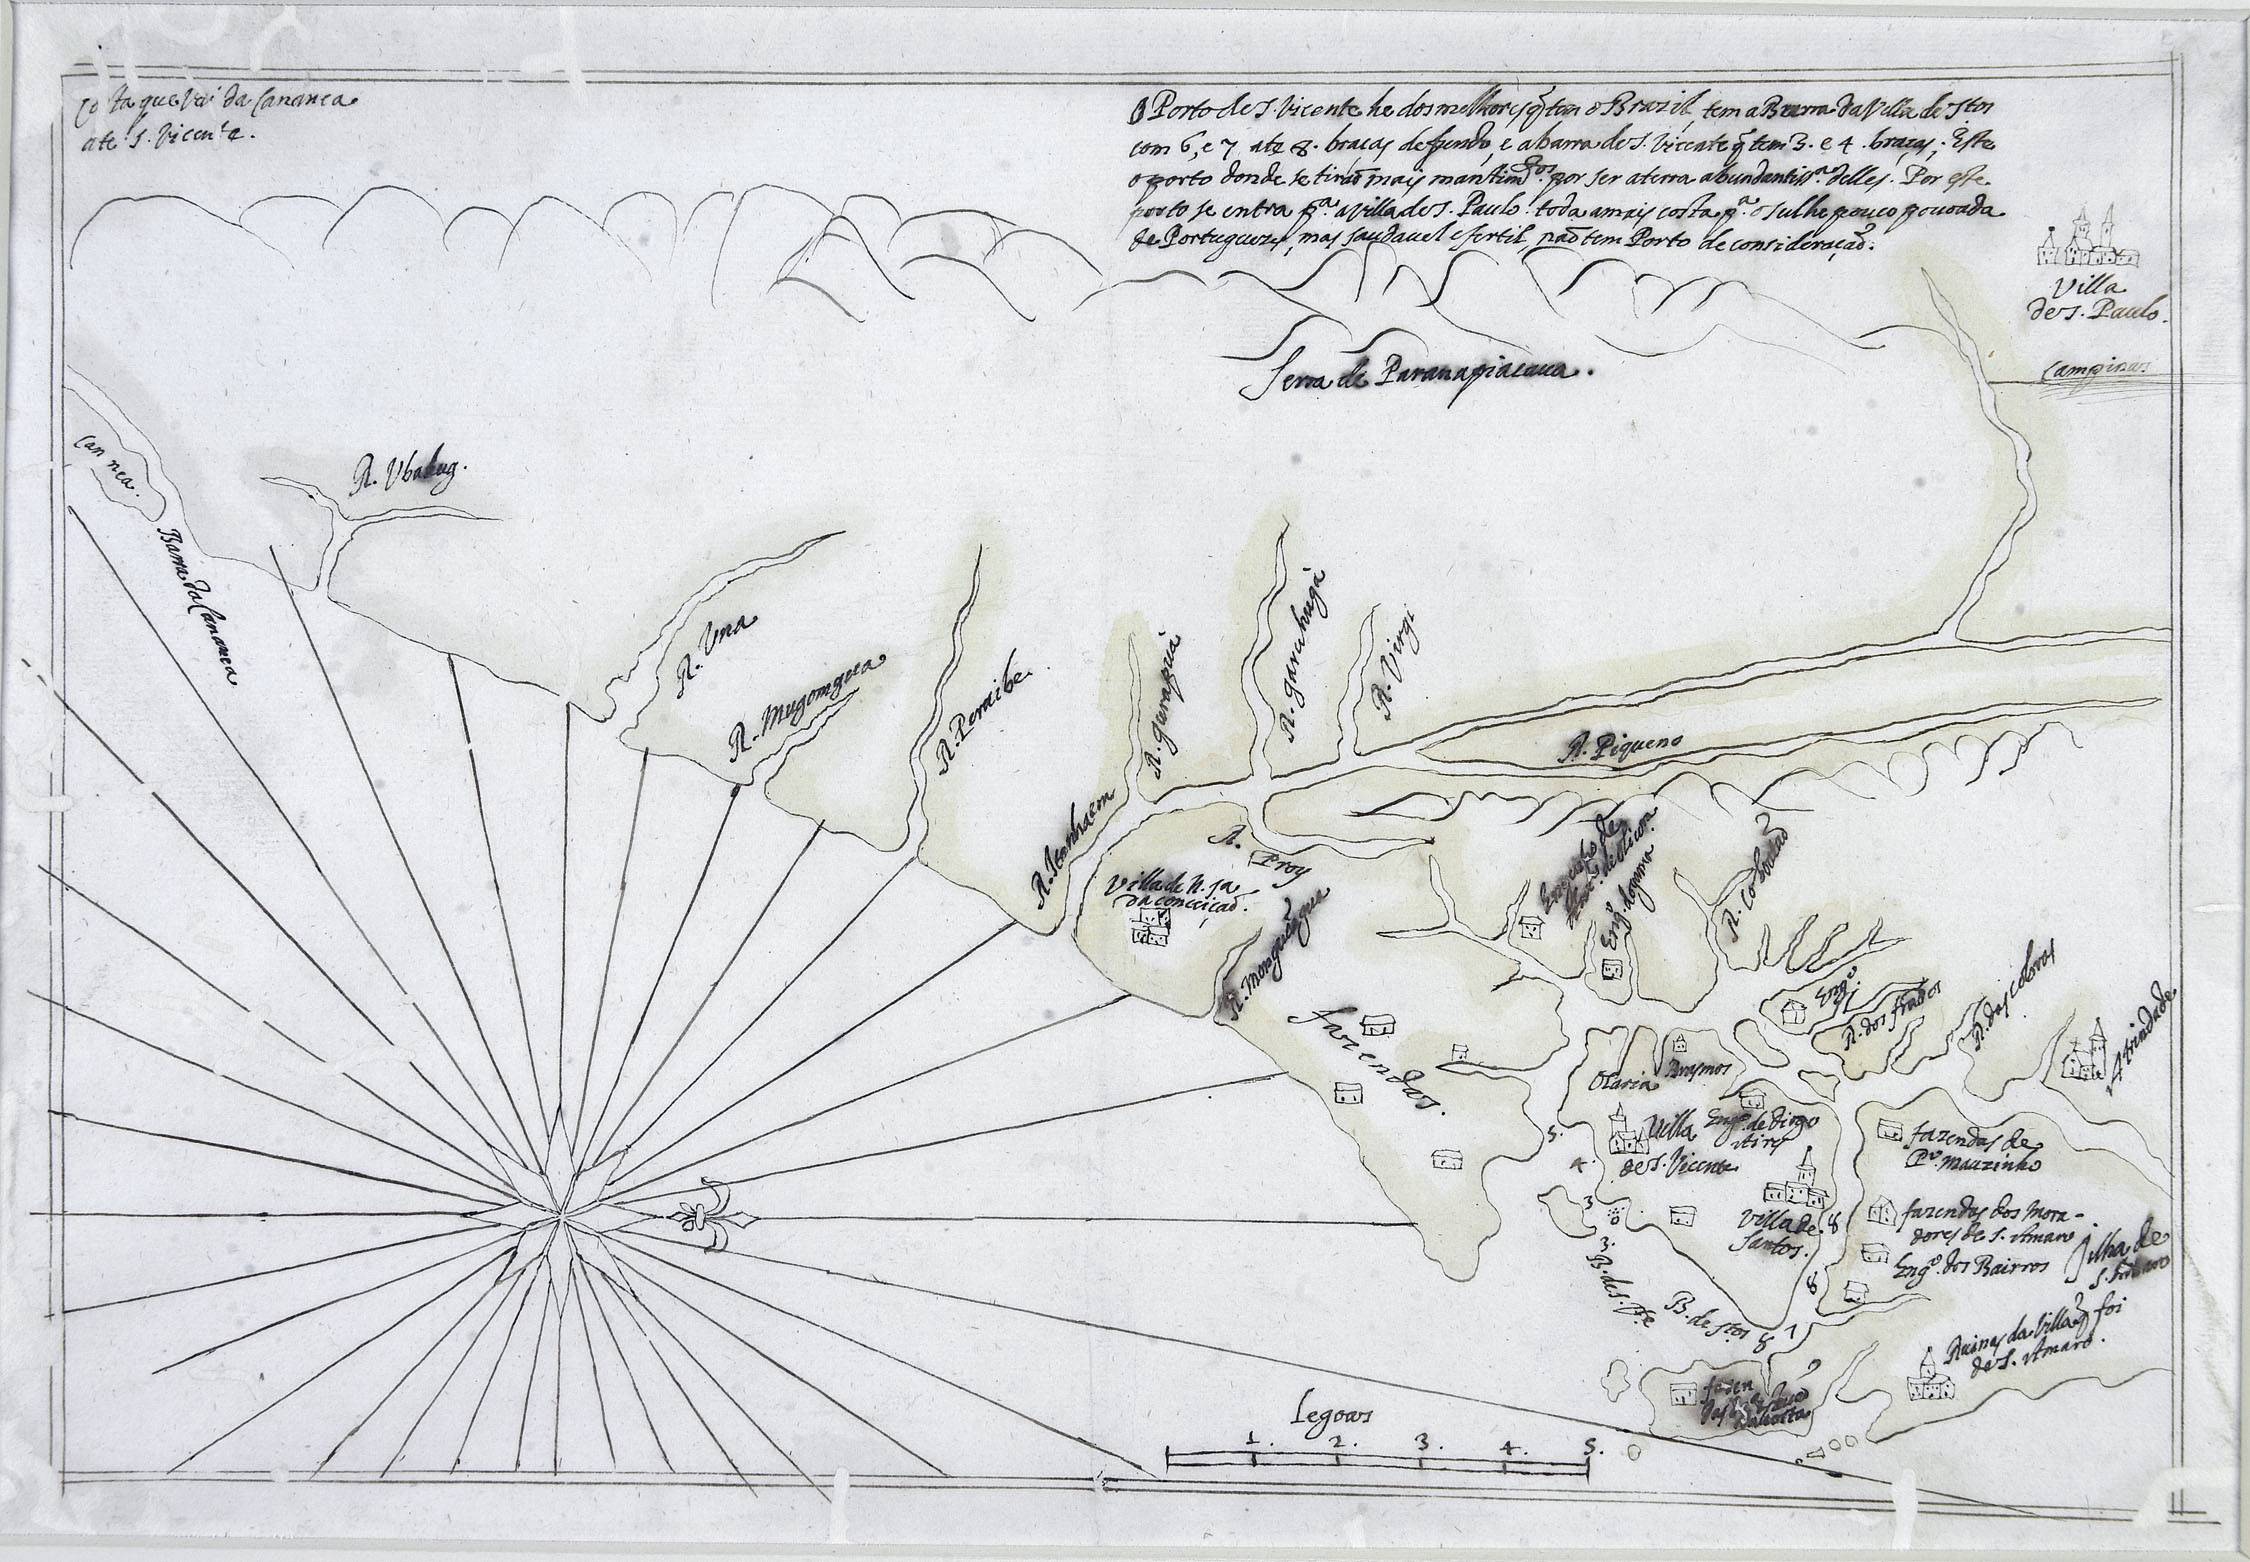 Costa que vai da Cananea
ate S. Vicente.
O Porto de S. Vicente he dos melhores q̃ tem o Brazil, tem a Barra da Villa de Stos
com 6, e 7 ate 8. braças de fundo, e a barra de S. Vicente q̃ tem 3. e 4. braças; Este
o porto donde se tirão mais mantimtos. por ser a terra abundantissa. delles. Por este
porto se entra pa. a Villa de S. Paulo. toda a mais costa pa. o sul he pouco povoada
de Portugueses, mas saudavel e fertil, não tem Porto de consideração.
Villa
de S. Paulo.
Campinas
Serra de Paranapiacava.
Cannea.
Barra da Cananea
R. Ubabug.
R. Una
R. Mugomguea
R. Peraibe.
R. Itanhaem
R. guarapia
R. garahugá
R. Virgi
R. Piqueno
R.
Proy
Villa de N. Sa
da conceição.
R. Mongua
Engo. do goma
R. Cobatão
Engo.
R. dos frades
R. das cobras
A trindade
fazendas.
Otaria
Brasmos
Villa
de S. Vicente
Engo. de diogo
Airy
Villa de
Santos.
fazendas de
Po. mauzinho
fazendas dos mora-
dores de S. Amaro
Engo. dos Bairros
Jilha de
S. Amaro
Ruinas da Villa q̃ foi
de S. Amaro.
5.
4.
3
3.
8
8
8
7
B. de S. Vte
B. de Stos
fazen
da costa
Legoas
1. 2. 3. 4. 5.